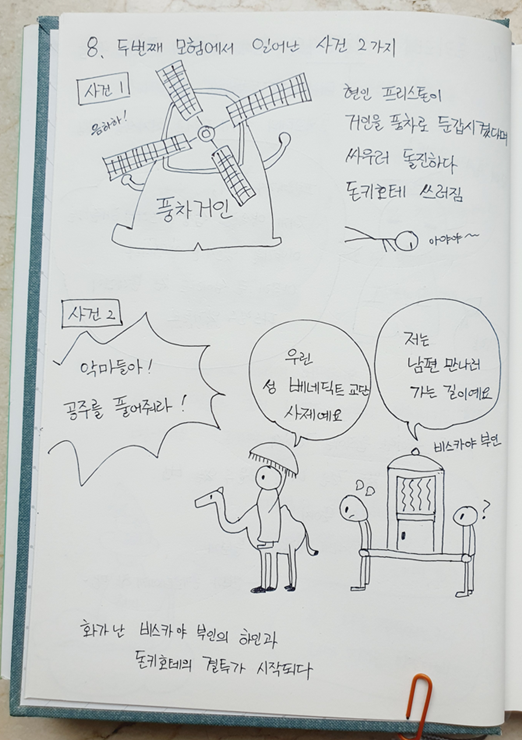 8. 두번째 모험에서 일어난 사건 2가지
사건 1
음하하!
풍차거인
현인 프리스톤이
거인을 풍차로 둔갑시켰다며
싸우러 돌진하다
돈키호테 쓰러짐
아야야~
사건 2
악마들아!
공주를 풀어줘라!
우린
성 베네딕트 교단
사제예요
저는
남편 만나러
가는 길이예요
비스카야 부인
?
화가 난 비스카야 부인의 하인과
돈키호테의 결투가 시작되다